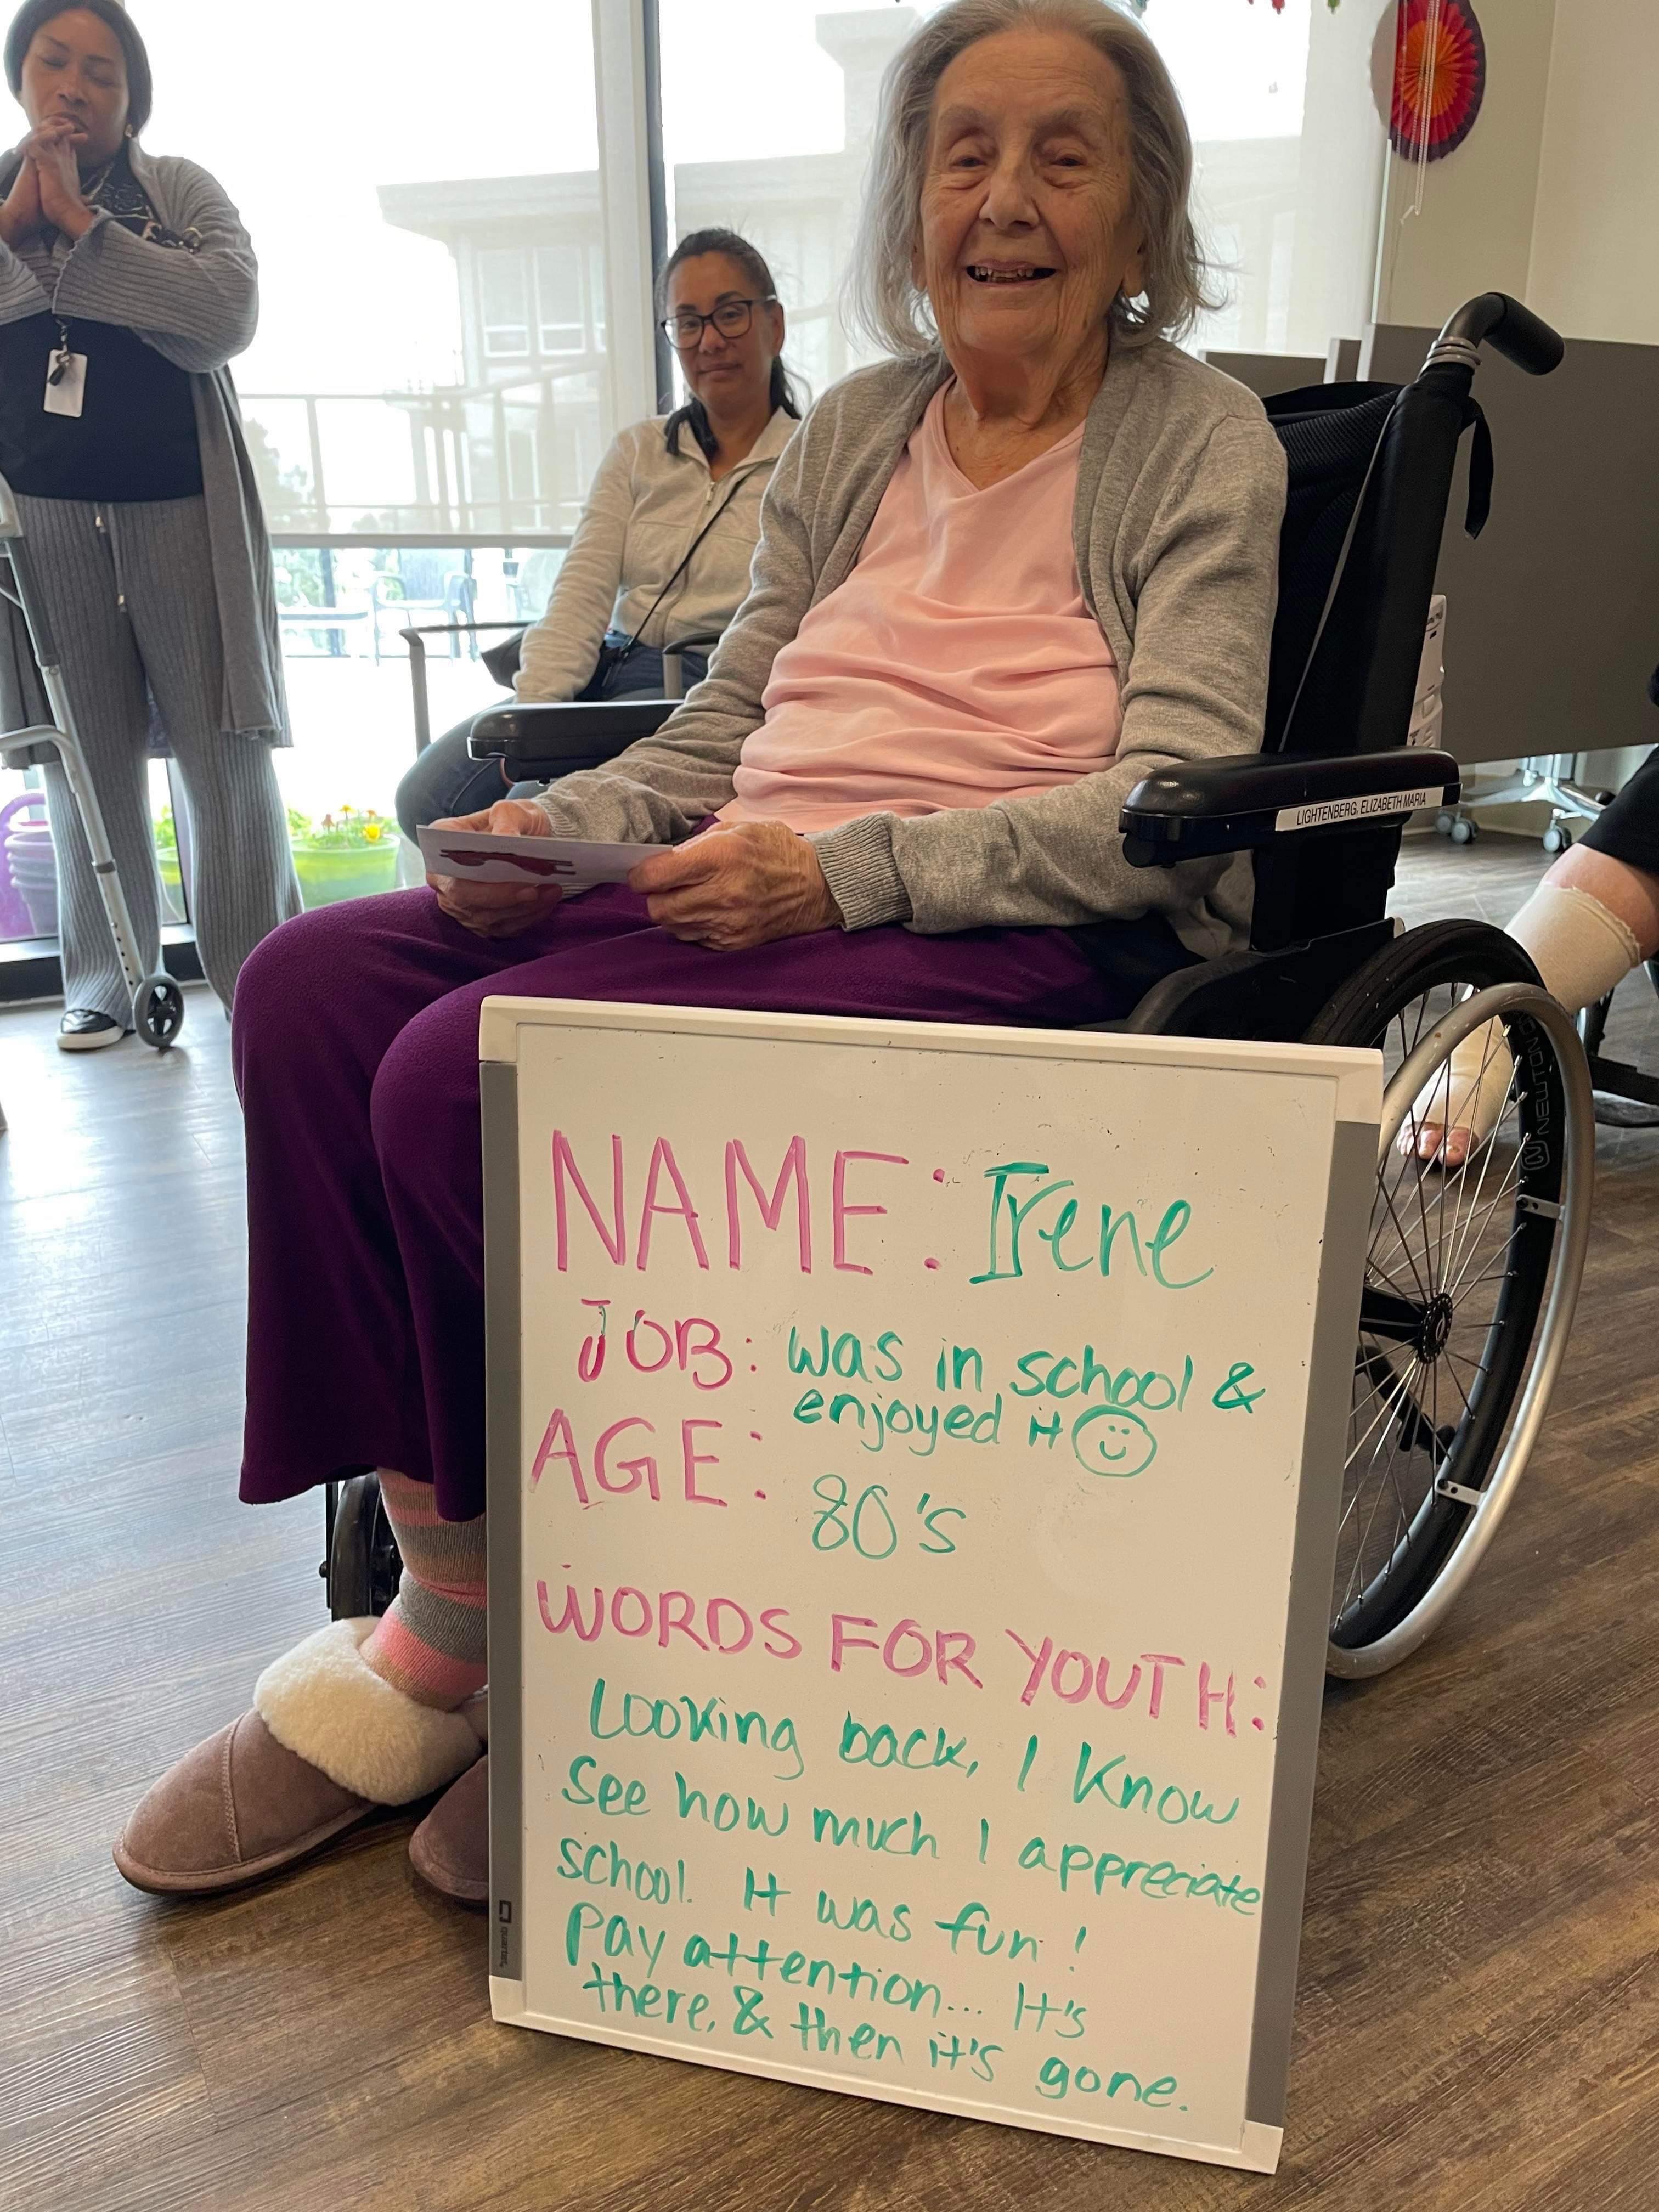 LIGHTENBERG, ELIZABETH MARIA
NAME: Irene
JOB: was in school &
enjoyed it
AGE: 80's
WORDS FOR YOUTH:
Looking back, I know
see how much I appreciate
school. It was fun!
Pay attention... It's
there, & then it's gone.